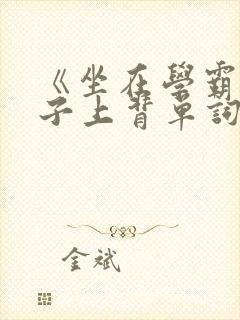 《坐在學霸
子上背單詞
金斌